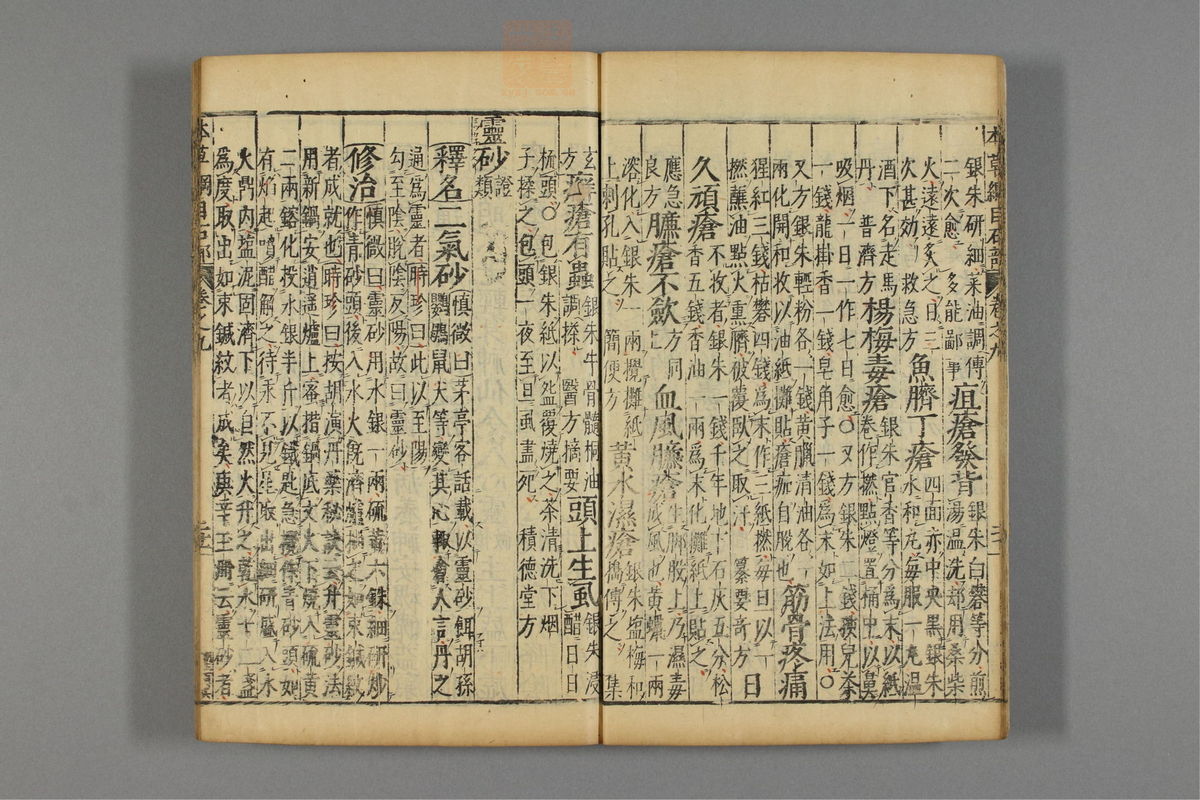 本草綱目石部 卷之九
銀朱研細菜油調傅二次愈 多能鄙事 疽瘡發背 銀朱白礬等分煎湯溫洗却用桑柴
火遠遠炙之日三次甚効 救急方 魚臍丁瘡 四面赤中央黑銀朱水和丸每服一丸溫
酒下名走馬丹 普濟方 楊梅毒瘡 銀朱官香等分為末以紙卷作撚點燈置桶中以鼻
吸烟一日一作七日愈○又方銀朱二錢孩兒茶一錢龍掛香一錢皂角子一錢為末如上法用○
又方銀朱輕粉各一錢黃臘清油各一兩化開和收以油紙攤貼瘡痂自脫也 筋骨疼痛
猩紅三錢枯礬四錢為末作三紙撚每日以一撚蘸油點火熏臍被覆臥之取汗 纂要奇方 日
久頑瘡 不收者銀朱一錢千年地下石灰五分松香五錢香油一兩為末化攤紙上貼之
應急良方 臁瘡不斂 方同上 血風臁瘡 生脚股上乃濕毒成風也黃蠟一兩
溶化入銀朱一兩攪攤紙上刺孔貼之 簡便方 黃水濕瘡 銀朱塩梅和搗傅之 集
玄方 癬瘡有蟲 銀朱牛骨髓桐油調搽 醫方摘要 頭上生虱 銀朱浸醋日日
梳頭○包銀朱紙以盌覆燒之茶清洗下烟子搽之包頭一夜至旦虱盡死 積德堂方
靈砂 證類
釋名 二氣砂 慎微曰茅亭客話載以靈砂餌胡孫鸚鵡鼠犬等變其心輒會人言丹之
通為靈者時珍曰此以至陽勾至陰脫陰反陽故曰靈砂
修治 慎微曰靈砂用水銀一兩硫黃六銖細研炒作青砂頭後入水火既濟爐抽之如束鍼紋
者成就也時珍曰按胡演丹藥秘訣云升靈砂法用新鍋安逍遙爐上蜜揩鍋底文火下燒入硫黃
二兩鎔化投水銀半斤以鐵匙急攪作青砂頭如有焰起噴醋解之待汞不見星取出細研盛入水
火鼎內塩泥固濟下以自然火升之乾水十二盞為度取出如束鍼紋者成矣庚辛玉冊云靈砂者
本草綱目石部 卷之九